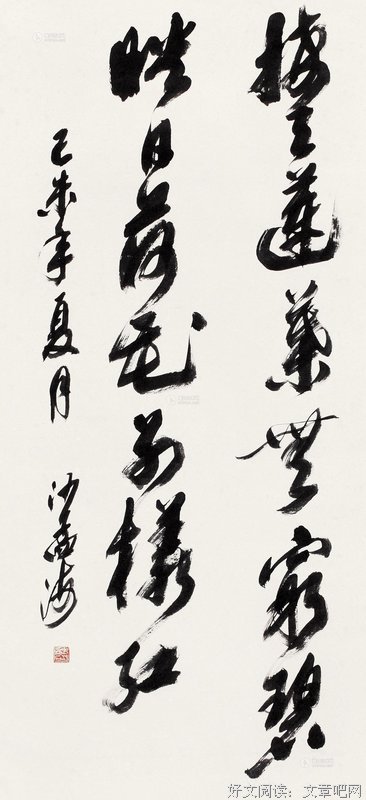 接天蓮葉無窮碧
映日荷花別樣紅
己未年夏月 沙孟海
好文阅读：文章吧网